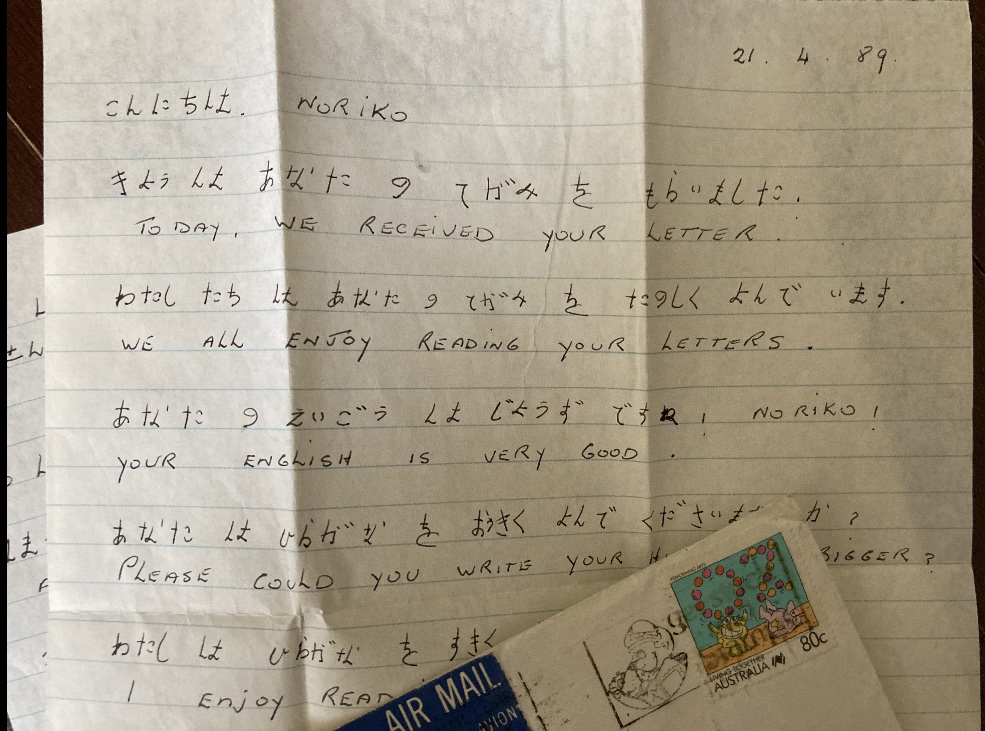 21. 4. 89.
こんにちは. NORIKO
きょうは あなた の てがみ を もらいました.
TODAY, WE RECEIVED YOUR LETTER.
わたし たち は あなた の てがみ を たのしく よんで います.
WE ALL ENJOY READING YOUR LETTERS.
あなた の えいごう は じょうず ですね! NORIKO!
YOUR ENGLISH IS VERY GOOD.
あなた は ひらがな を おうきく よんで くださいま か?
PLEASE COULD YOU WRITE YOUR BIGGER?
わたし は ひらがな を すきく
I ENJOY READ
AIR MAIL
AVION
LIVING TOGETHER
AUSTRALIA
80c
PERFORMING ARTS